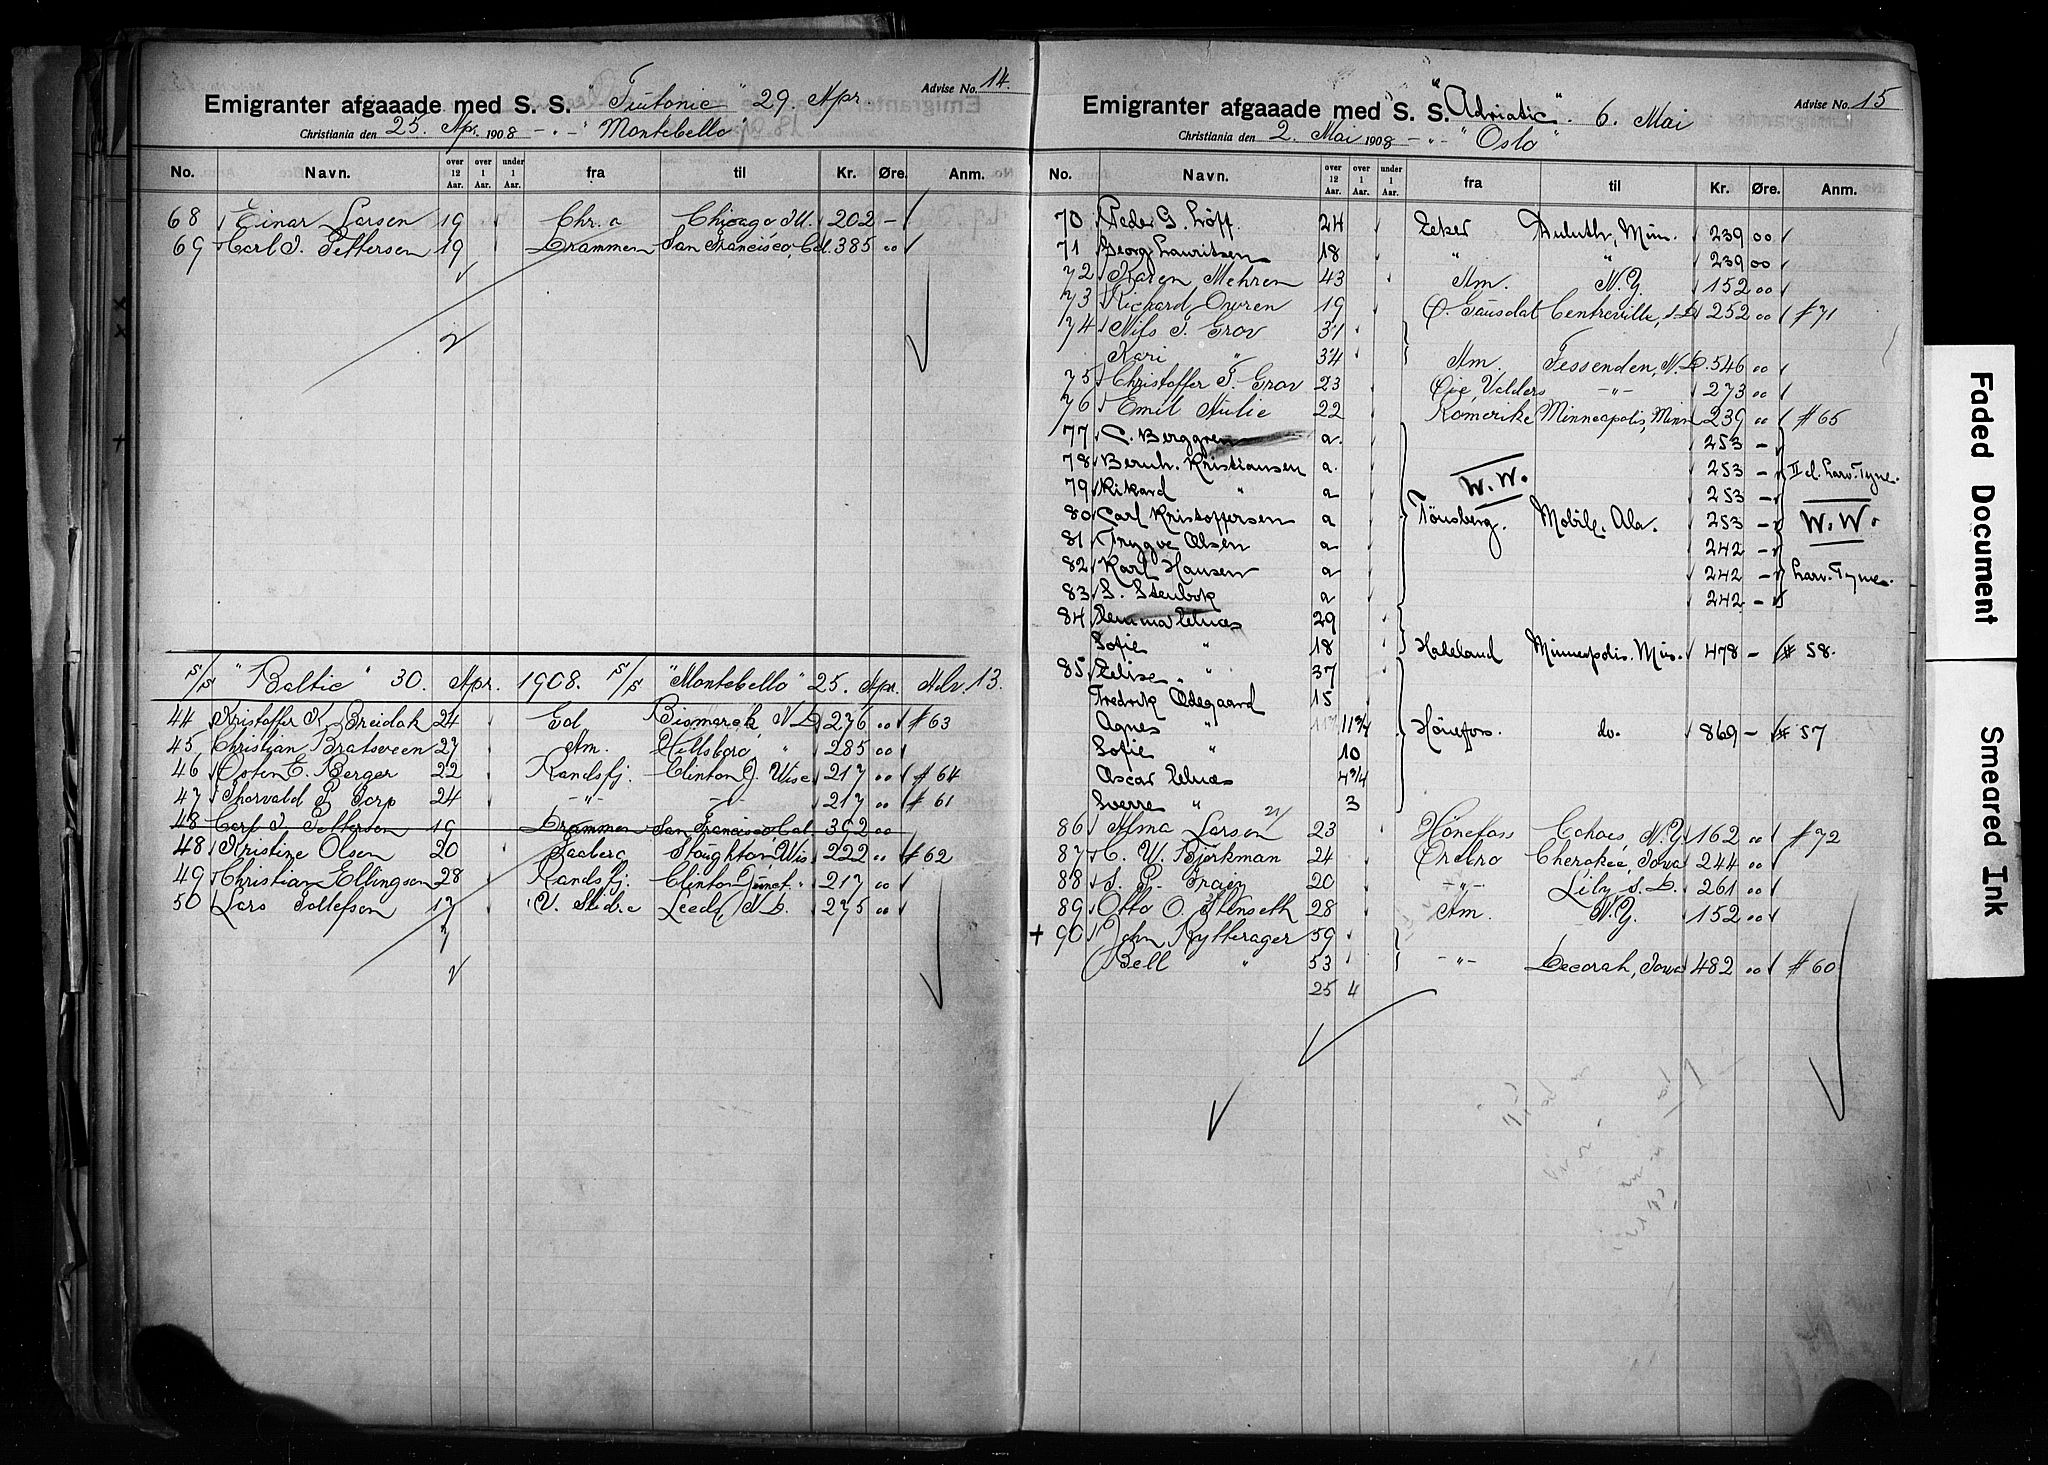 Emigranter afgaaade med S. S. Teutonic " 29. Apr. Advise No. 14.
Christiania den 25. Ap. 1908 - " - "Montebello"
No. Navn. over 12 Aar. over 1 Aar. under 1 Aar. fra til Kr. Øre. Anm.
68 Einar Larsen 19 Chr.a Chicago Ill. 202 -
69 Carl J. Pettersen 19 Drammen San Francisco, Cal. 385 00
2
S/S "Baltic" 30. Apr. 1908. S/S "Montebello" 25. Apr. Adv. 13.
44 Kristoffer K. Breidak 24 Gol Bismarck, N.D. 276 00 # 63
45 Christian Bratsveen 27 Am. Hillsboro, " 285 00
46 Osten E. Berger 22 Randsfj. Clinton J. Wisc 217 00 # 64
47 Thorvald P. Torp 24 - " - - " - 217 00 # 61
48 Carl J. Pettersen 19 Drammen San Francisco Cal 392 00
48 Kristine Olsen 20 Stoughton Wis. 222 00 # 62
49 Christian Ellingson 28 Randsfj. Clinton Junct. " 217 00
50 Lars Tollefsen 17 V. Slidre Leeds N.D. 275 00
7
Emigranter afgaaade med S. S. "Adriatic". 6. Mai Advise No. 15
Christiania den 2. Mai 1908 - " - "Oslo"
No. Navn. over 12 Aar. over 1 Aar. under 1 Aar. fra til Kr. Øre. Anm.
70 Peder G. Löff. 24 Eeker Duluth, Min. 239 00
71 Georg Lauritsen 18 " " 239 00
72 Karen Mehren 43 Am. N.Y. 152 00
73 Richard Owren 19 Ø. Gausdal Centreville, S.D. 252 00 # 71
74 Nils T. Grov 31
Kari " 34 Am. Fessenden, N.D. 546 00
75 Christoffer T. Grov 23 Øie, Valders - " - 273 00
76 Emil Julie 22 Romerike Minneapolis, Minn 239 00 # 65
77 C. Berggren a. 253 -
78 Bernh. Kristiansen a. W. W. 253 - II cl. Larv. Tyne.
79 Rikard " a 253 -
80 Carl Kristoffersen a Tönsberg. Mobile. Ala. 253 - W. W.
81 Trygve Olsen a 242 -
82 Karl Hansen a 242 - Larv. Tyne.
83 S. Stenbok a 242 -
84 Emma Elnæs 29
Sofie " 18 Hadeland Minneapolis. Min. 478 - # 58.
85 Elise " 37
Fredrik Ödegaard 15
Agnes " 11 3/4 Hönefos. do. 869 - # 57
Sofie " 10
Oscar Elnæs 4 3/4
Sverre " 3
86 Alma Larsen 21/ 23 Hönefoss Cohoes, N.Y. 162 00 # 72
87 C. W. Björkman 24 Örebro Cherokee, Iowa 244 00
88 S. P. 20 - " - Lily S.D. 261 00
89 Otto O. Stenseth 28 Am. N.Y. 152 00
+ 90 John Rytterager 59
Bell " 53 - " - Decorah, Iowa 482 00 # 60
25 4
Faded Document
Smeared Ink